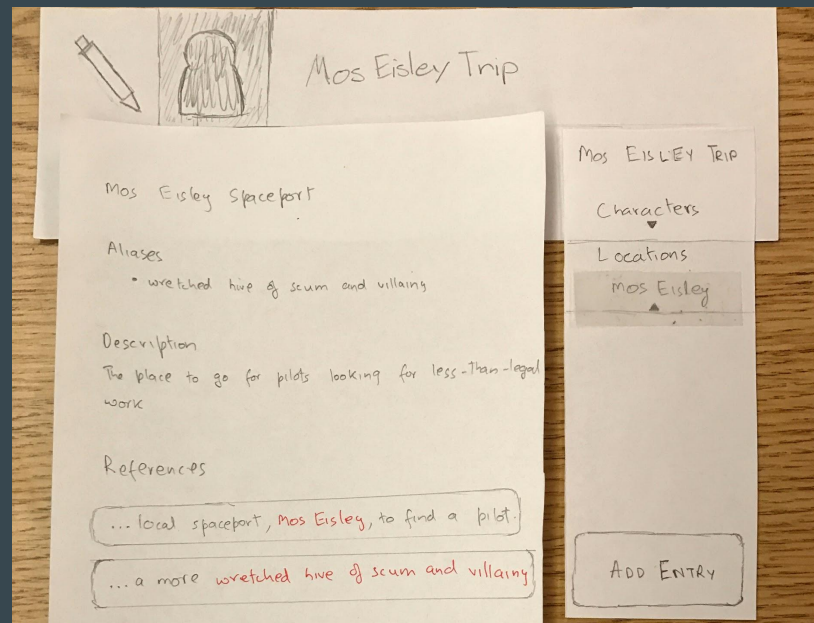 Mos Eisley Trip
Mos Eisley Spaceport
Aliases
• wretched hive of scum and villainy
Description
The place to go for pilots looking for less-than-legal
work
References
... local spaceport, Mos Eisley, to find a pilot.
... a more wretched hive of scum and villainy
MOS EISLEY TRIP
Characters
Locations
Mos Eisley
ADD ENTRY